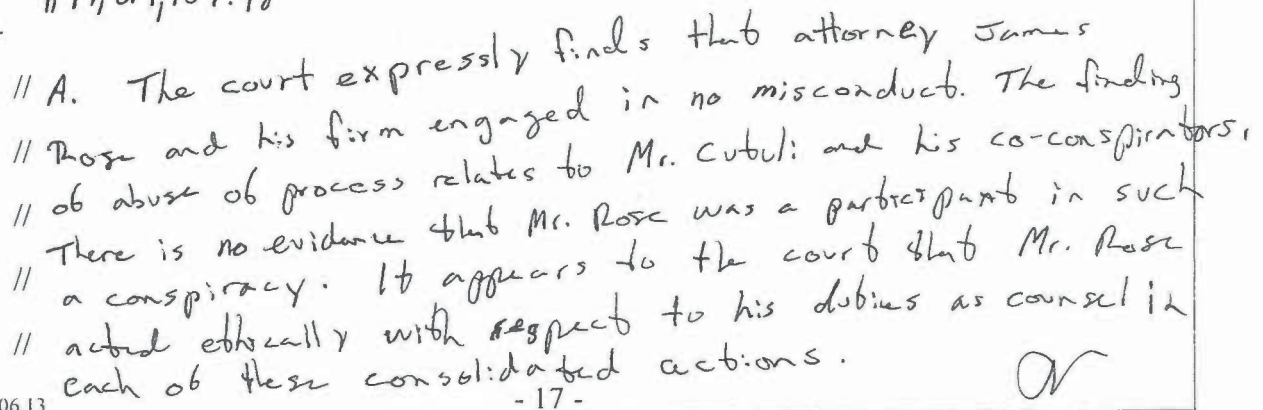 // A. The court expressly finds that attorney James
// Rose and his firm engaged in no misconduct. The finding
// of abuse of process relates to Mr. Cutuli and his co-conspirators.
// There is no evidence that Mr. Rose was a participant in such
// a conspiracy. It appears to the court that Mr. Rose
// acted ethically with respect to his duties as counsel in
each of these consolidated actions.
06.13 - 17 -